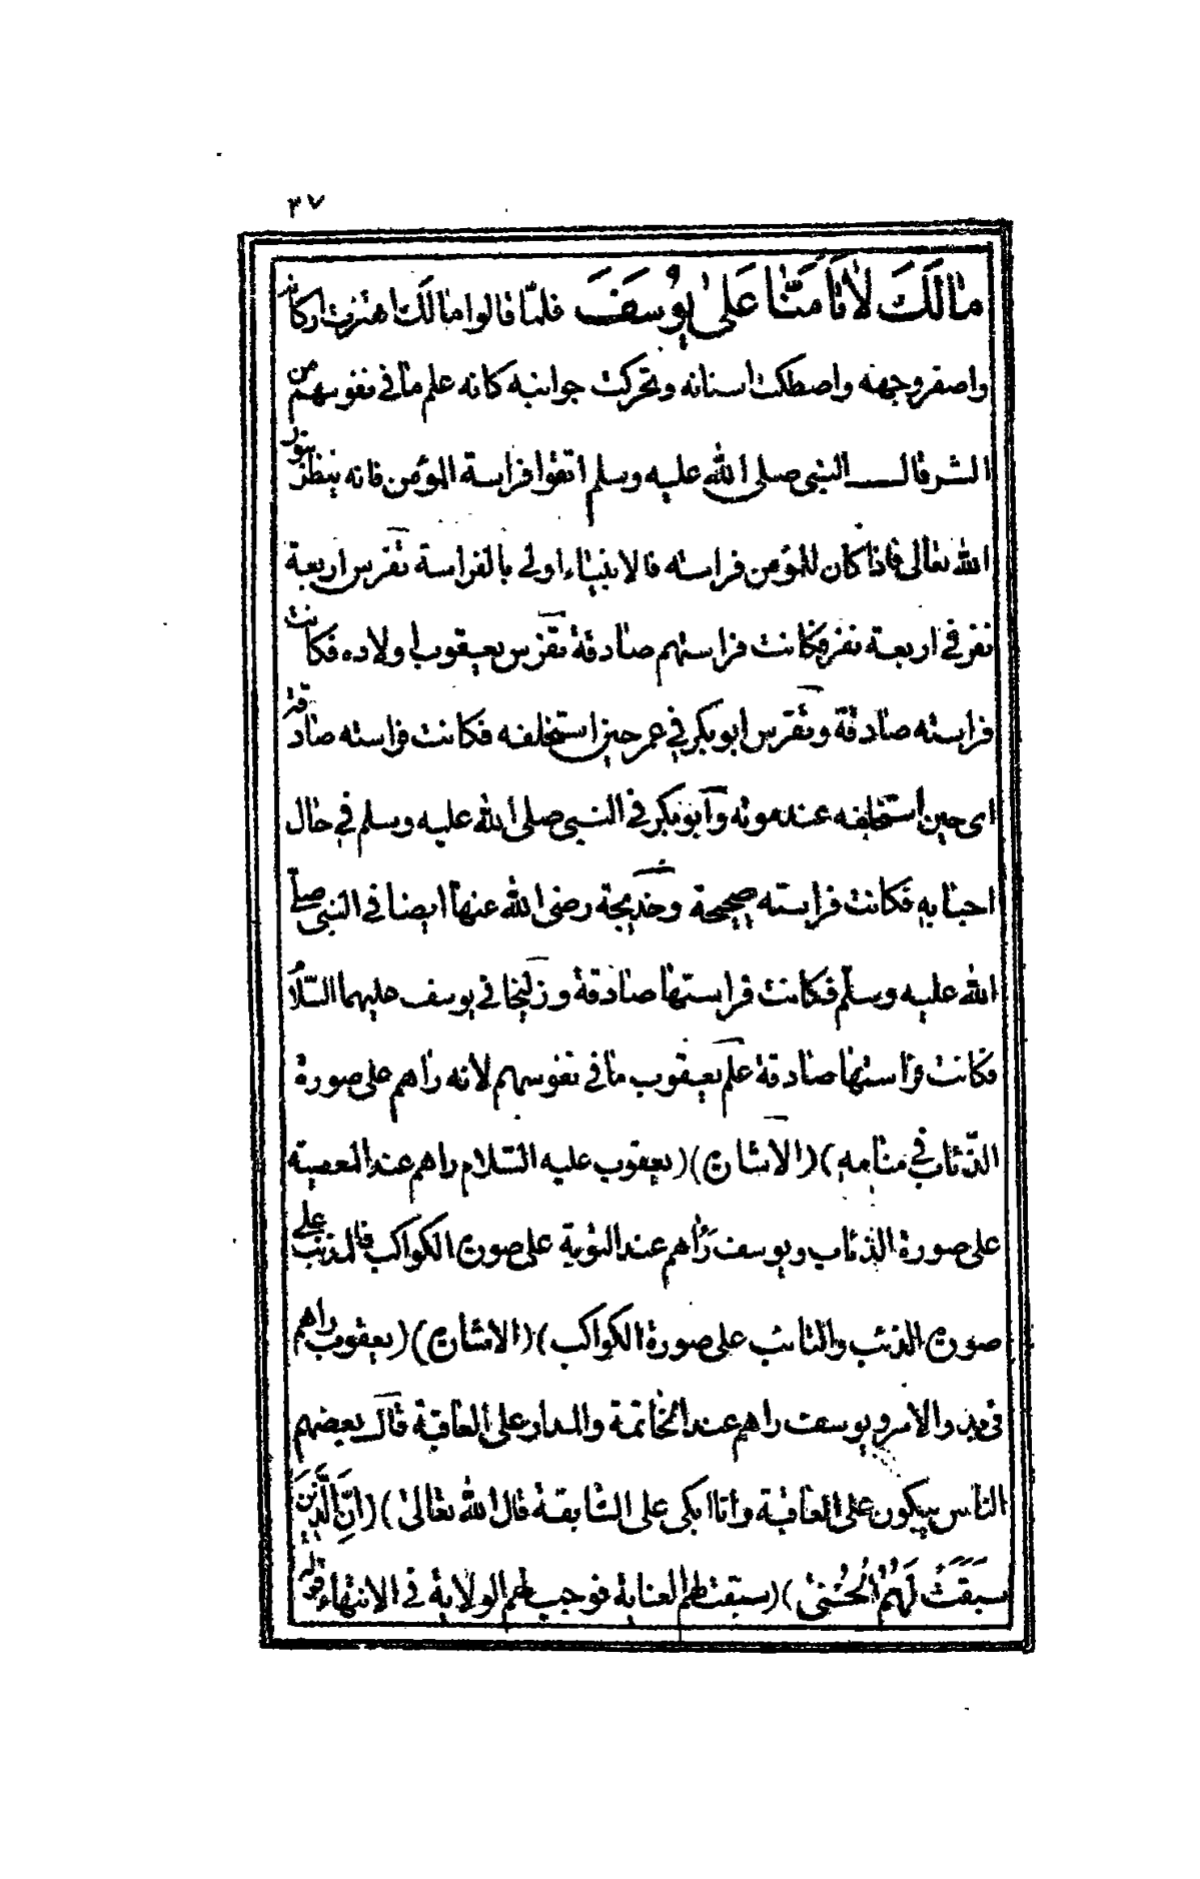 ٣٧
مالك لا تأمنا على يوسف فلما قالوا مالك اهتزت اركانه
واصفر وجهه واصطكت اسنانه وتحركت جوانبه كانه علم ما في نفوسهم من
الشر قال النبي صلى الله عليه وسلم اتقوا فراسة المؤمن فانه ينظر بنور
الله تعالى فاذا كان للمؤمن فراسته فالانبياء اولى بالفراسة تفرس اربعة
نفر في اربعة نفر فكانت فراستهم صادقة تفرس يعقوب اولاده فكانت
فراسته صادقة وتفرس ابو بكر في عمر حين استخلفه فكانت فراسته صادقة
اى حين استخلفه عند موته وابو بكر في النبي صلى الله عليه وسلم في حال
احبابه فكانت فراسته صحيحة وخديجة رضى الله عنها ايضا في النبي صلى
الله عليه وسلم فكانت فراستها صادقة وزليخا في يوسف عليهما السلام
فكانت فراستها صادقة علم يعقوب ما في نفوسهم لانه راهم على صورة
الذئاب في منامه) (الاشارة) (يعقوب عليه السلام راهم عند المعصية
على صورة الذئاب ويوسف رأهم عند التوبة على صورة الكواكب فالمذنب على
صورة الذئب والتائب على صورة الكواكب) (الاشارة) (يعقوب راهم
في بدو الامر ويوسف راهم عند الخاتمة والمدار على العاقبة قال بعضهم
الناس يبكون على العاقبة وانا ابكى على السابقة قال الله تعالى) (ان الذين
سبقت لهم الحسنى) (سبقت لهم العناية فوجب لهم الولاية في الانتهاء قوله